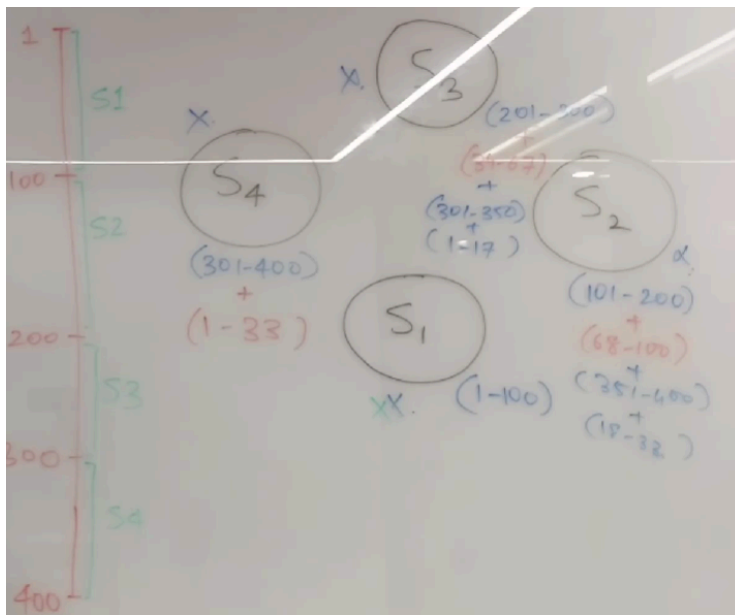 1
S1
100
S2
200
S3
300
S4
400
X.
S4
(301-400)
+
(1-33)
X.
S3
(201-300)
+
(34-67)
+
(301-350)
+
(1-17)
S2
α.
(101-200)
+
(68-100)
+
(351-400)
+
(18-33)
S1
XX.
(1-100)